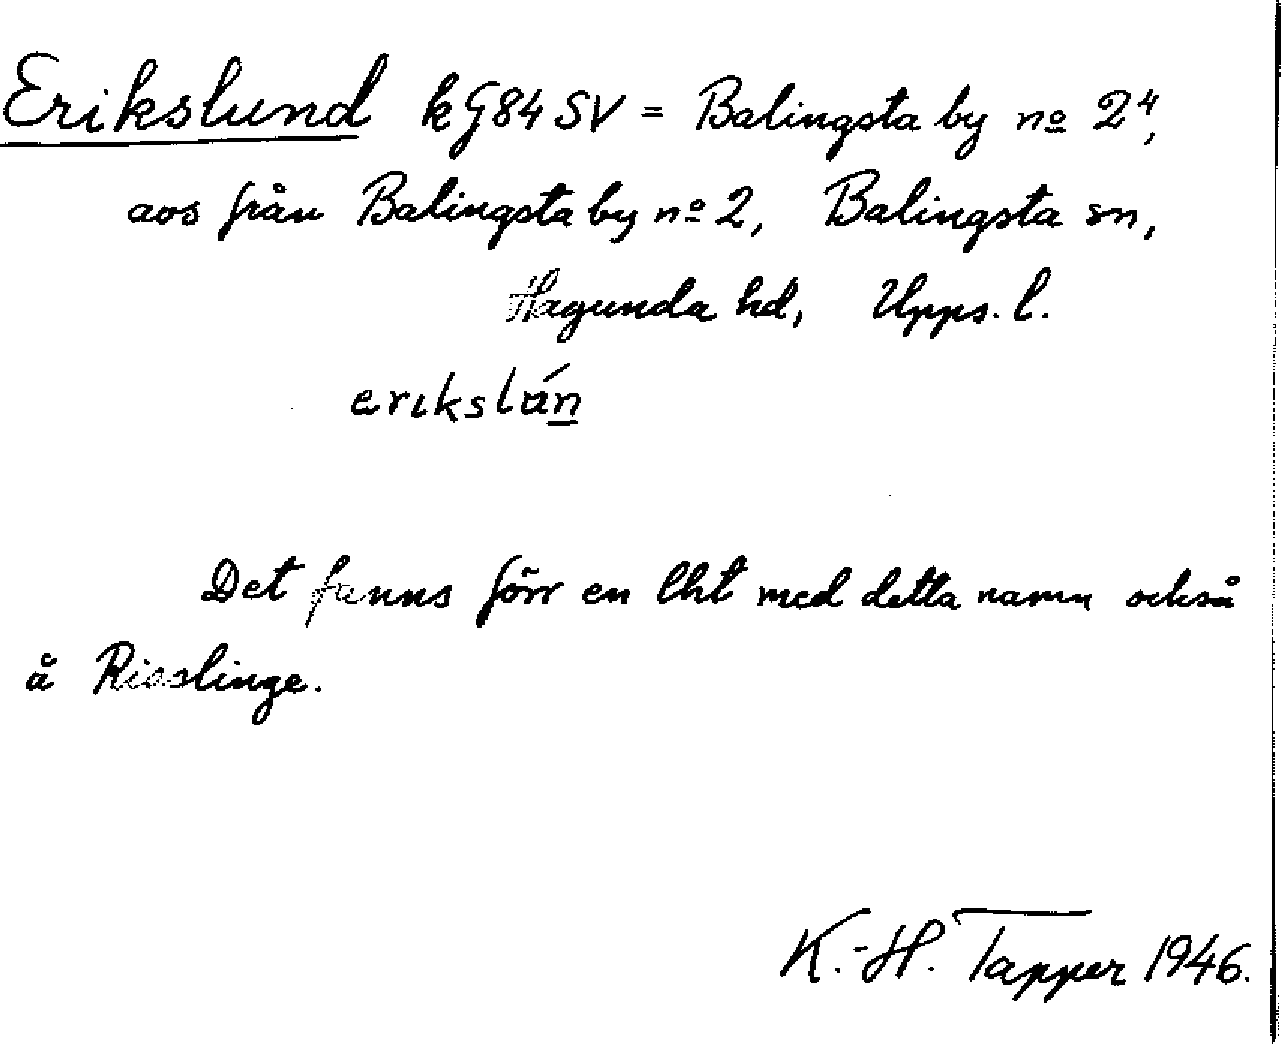 Erikslund k G84 SV = Balingsta by nº 2⁴,
avs från Balingsta by nº 2, Balingsta sn,
Hagunda hd, Upps. l.
erikslán
Det fanns förr en lht med detta namn också
å Risslinge.
K.-H. Tapper 1946.